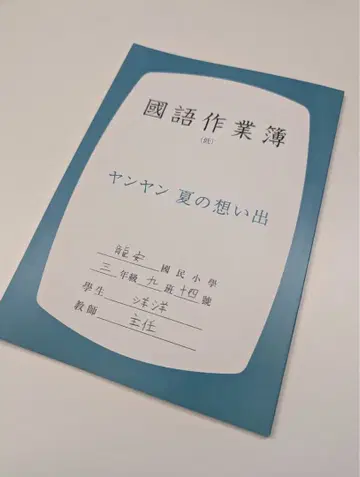 國語作業簿
(批)
ヤンヤン 夏の想い出
龍安國民小學
三年級九班十四號
學生 洋洋
教師 主任